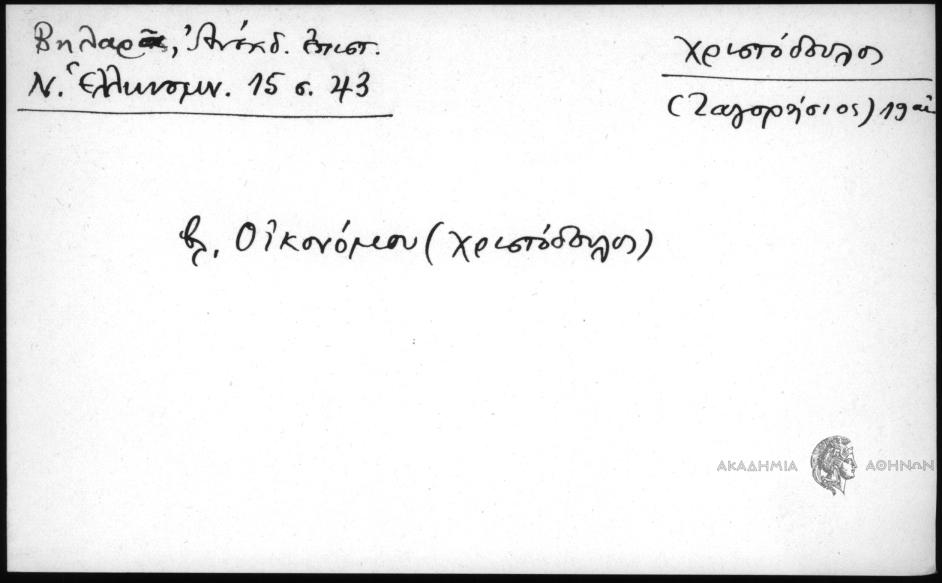 Βηλαρᾶς, Ἀνέκδ. ἐπιστ.
Ν. Ἑλληνομν. 15 σ. 43
Χριστόδουλος
(Ζαγορήσιος) 19 αἰ
βλ. Οἰκονόμου (Χριστόδουλος)
ΑΚΑΔΗΜΙΑ ΑΘΗΝΩΝ